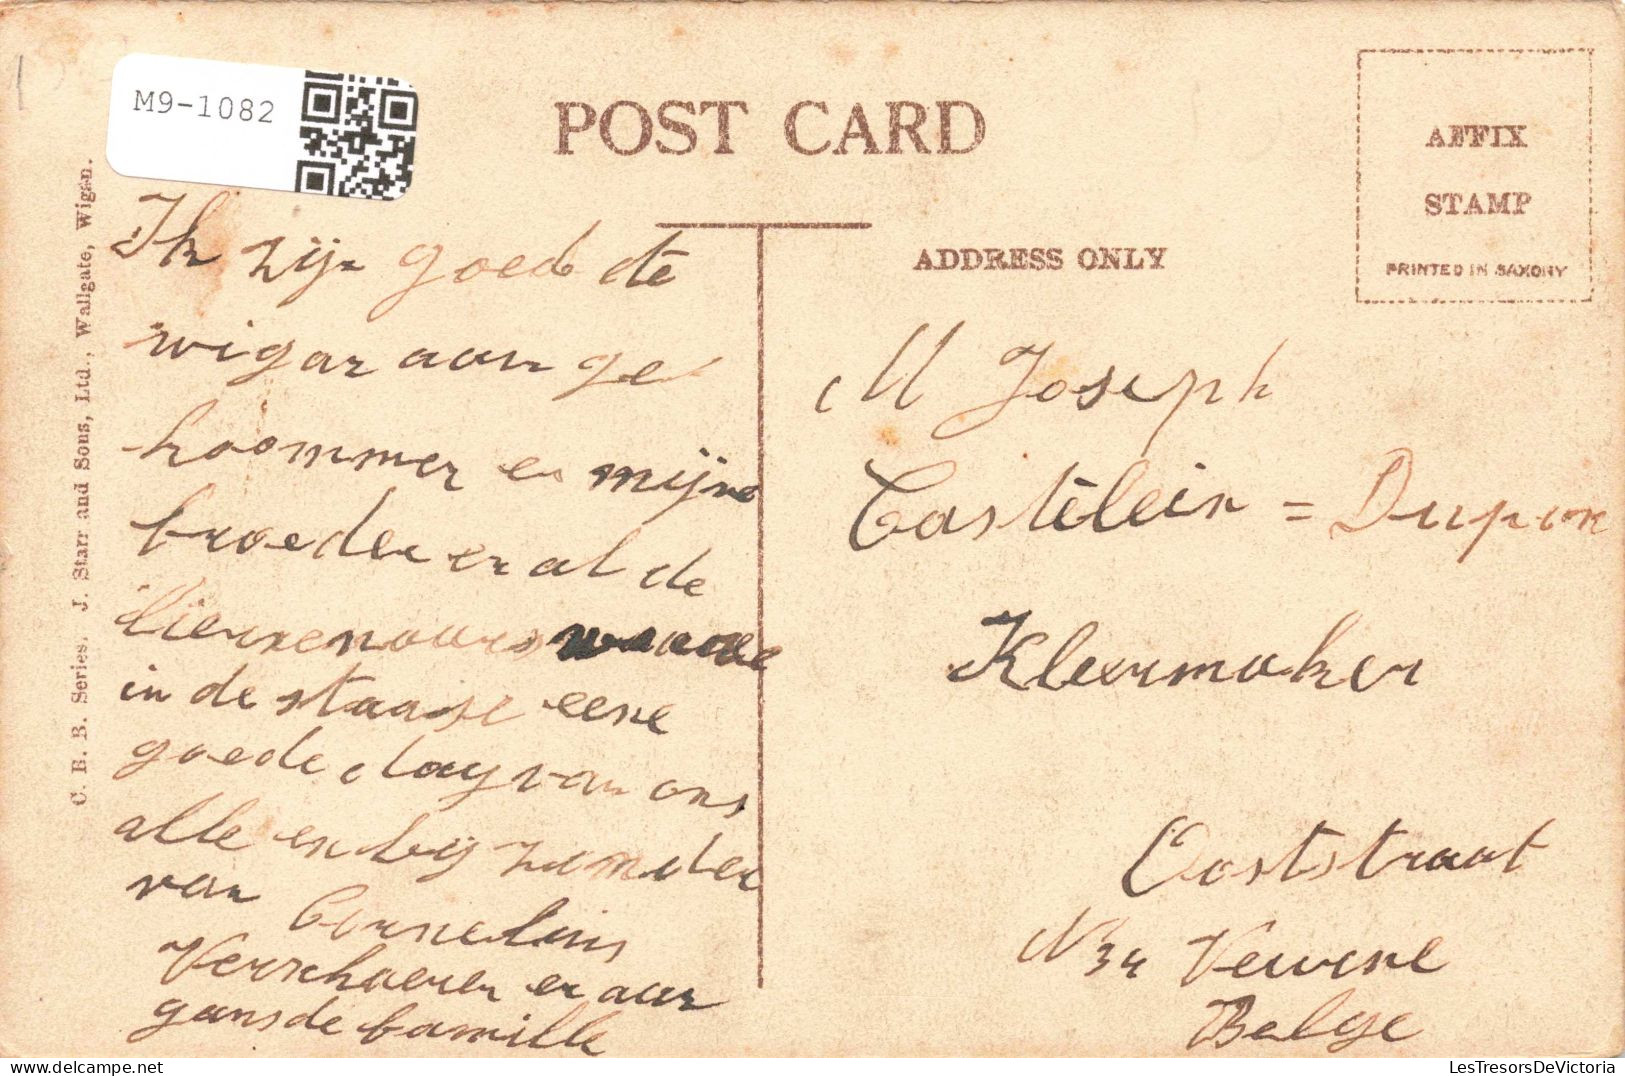 M9-1082
POST CARD
AFFIX
STAMP
PRINTED IN SAXONY
ADDRESS ONLY
C. B. B. Series. J. Starr and Sons, Ltd., Wallgate, Wigan.
Ik zijn goed te
wigan aan ge
koommen en mijne
broeder en al de
in de staase eene
goede dag van ons
alle en bij zonder
van Cornelius
Verschaeren en aan
gansde famille
M Joseph
Castelein = Dupon
Kleermaker
Ooststraat
N 34 Veurne
Belge
LesTresorsDeVictoria